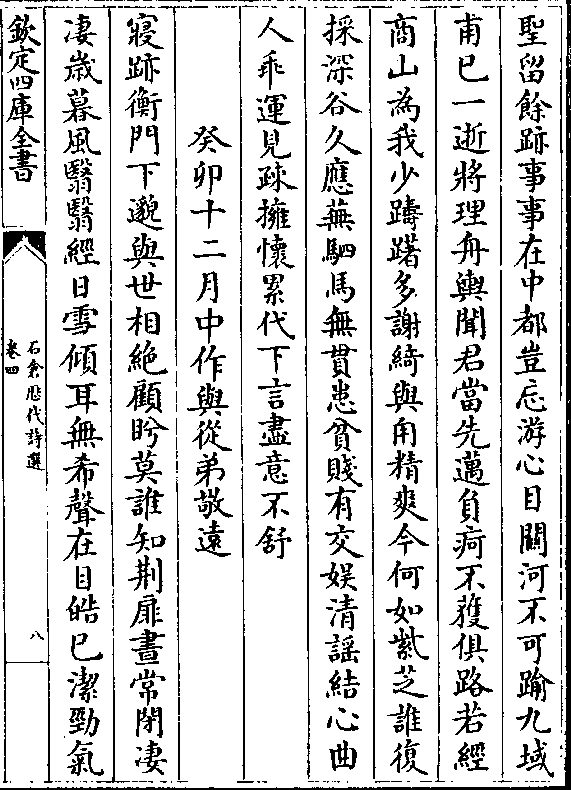 聖留餘跡事事在中都豈忘游心目關河不可踰九域
甫巳一逝將理舟輿聞君當先邁負痾不獲俱路若經
商山為我少躊躇多謝綺與甪精爽今何如紫芝誰復
採深谷久應蕪駟馬無貰患貧賤有交娱清謡結心曲
人乖運見疎擁懷累代下言盡意不舒
癸卯十二月中作與從弟敬遠
寢跡衡門下邈與世相絶顧盻莫誰知荆扉晝常閉凄
凄歳暮風翳翳經日雪傾耳無希聲在目皓巳潔勁氣
欽定四庫全書
石倉歴代詩選
卷四
八